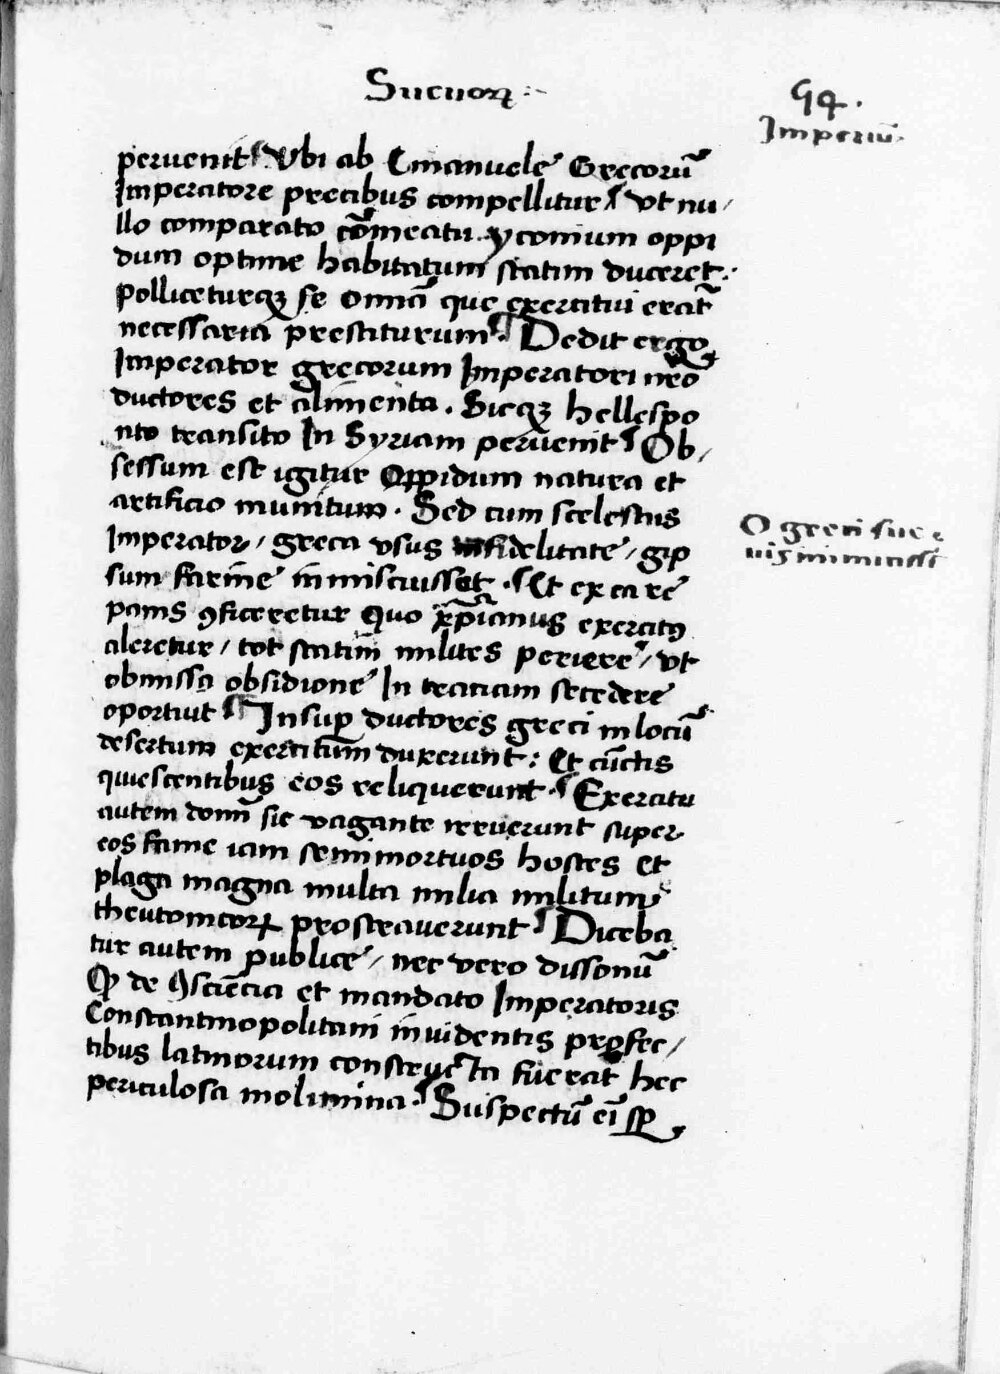 Sueuoꝝ
94.
Imperiū.
peruenit Vbi ab Emanuele Grecorū
Imperatore precibus compellitur / vt nu/
llo comparato cōmeatu yconium oppi
dum optime habitatum statim duceret:
Polliceturqꝫ se omnia que exercitui erāt
necessaria prestiturum. Dedit ergo
Imperator grecorum Imperatori nr̄o
ductores et alimenta. Sicqꝫ hellespo
nto transito In Syriam peruenit Ob/
sessum est igitur Oppidum natura et
artificio munitum. Sed cum scelestus
Imperator / greca vsus infidelitate / gip
sum farine inmiscuisset. Et ex ea re
panis ꝯficeretur Quo xp̄ianus exercitꝰ
aleretur / tot statim milites periere / vt
obmissa obsidione In traciam secedere
oportuit Insuꝑ ductores greci in locū
desertum exercitum duxerunt: Et cūctis
quiescentibus eos reliquerunt. Exercitu
autem domī sic vagante irruerunt super
eos fame iam semimortuos hostes et
plaga magna multa milia militum
theutonicoꝝ prostrauerunt Diceba
tur autem publice / nec vero dissonū
Ꝙ de ꝯsciēcia et mandato Imperatoris
Constantinopolitani inuidentis profec/
tibus latinorum constructa fuerāt hec
periculosa molimina. Suspectū eī sꝑ
O greci sue